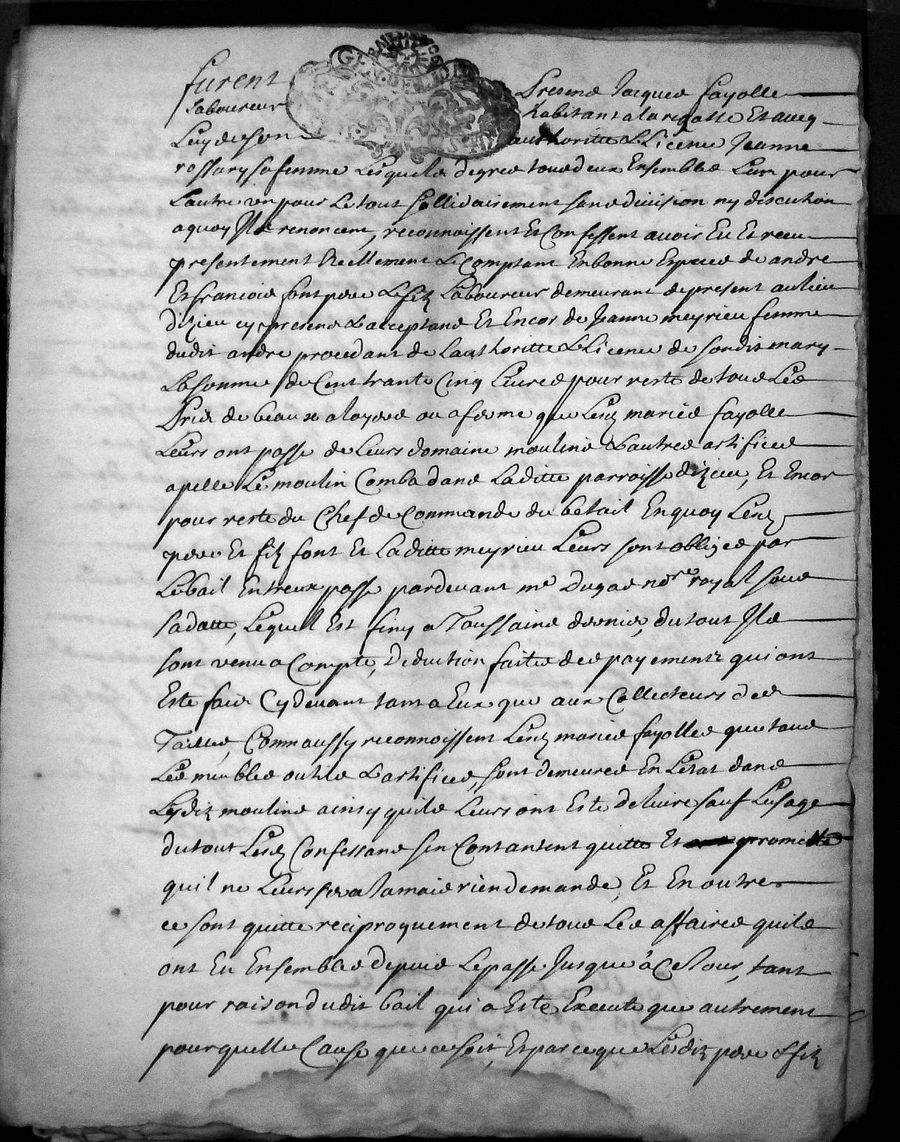 furent presens Jacques fayolle
laboureur habitant a laregasse Et avecq
Luy de son authoritte & Licence Jeanne
rossary sa femme Lesquels de gree tous deux Ensemble Lun pour
Lautre un pour Le tout sollidairement sans division ny discution
a quoy Ils renoncent, reconnoissent Et Confessent avoir Eu Et receu
presentement reellement & Comptant En bonne Espece de andre
Et francois font pere & fils Laboureur demeurant de present au lieu
dizieu cy presens & acceptans Et Encor de Jeanne meyrieu femme
dudit andre procedant de Lauthoritte & Licence de sondit mary
La somme de Cent trante Cinq Livres pour reste de tous Les
Prix de beaux a loyers ou a ferme que Lesd mariés fayolle
Leurs ont passe de Leurs domaine moulins & autres artifices
apelle Le moulin Comba dans Laditte parroisse dizieu, Et Encor
pour reste du Chef de Commande du betail En quoy Lesd
pere Et fils font Et Laditte meyrieu Leurs sont obligés par
Le bail Entreux passe pardevant me Dugas nore royal sous
sa datte, Lequel Est finy a Toussains dernier, du tout Ils
sont venu a Compte, Deduction faitte des payements qui ont
Este fais Cy devant tant a Eux que aux Collecteurs des
Tailles, Comm aussy reconnoissent Lesd mariés fayolles que tous
Les meubles outils & artifices, sont demeurés En Lestat dans
Lesdits moulins ainsy quils Leurs ont Este delivre sauf Lusage
du tout Lesd Confessans sen Contantent quitte Et promette
quil ne Leurs sera Jamais rien demande, Et En outre
ce sont quitte reciproquement de tous Les affaires quils
ont Eu Ensembles depuis Le passe Jusque à Ce Jour, tant
pour raison dudit bail qui a Este Execute que autrement
pour quelle Cause que ce soit, Et par ce que Lesdits pere & fils